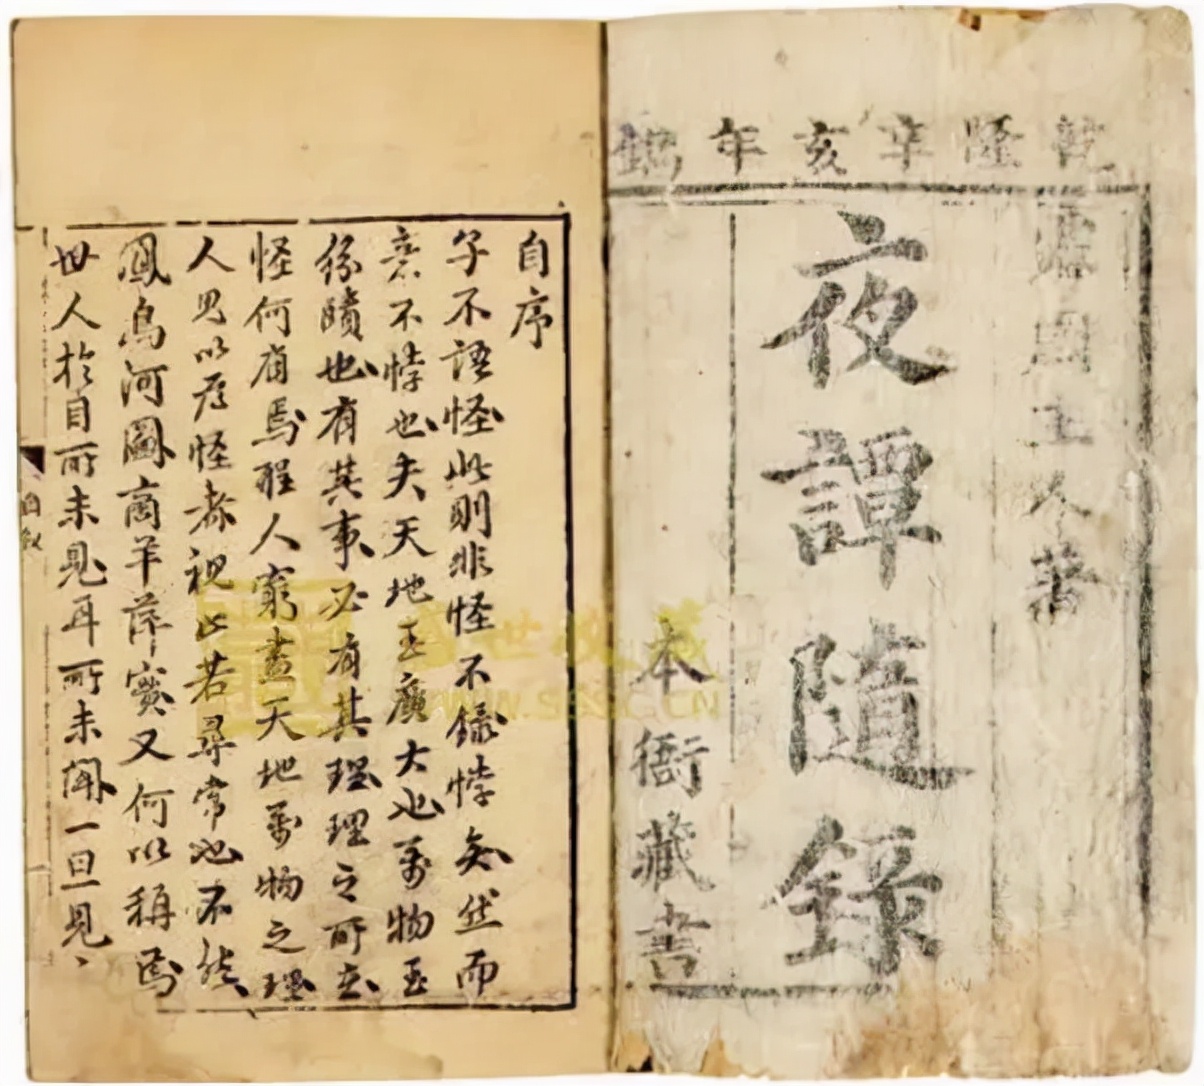 乾隆辛亥年鐫
霽園主人著
夜譚隨錄
本衙藏書
自序
子不語怪此則非怪不錄悖矣然而
意不悖也夫天地至廣大也萬物至
紛賾也有其事必有其理理之所在
怪何有焉聖人窮盡天地萬物之理
人見以為怪者視之若尋常也不然
鳳鳥河圖商羊萍實又何以稱焉
世人於目所未見耳所未聞一旦見、
自敘
盛世收藏
WWW.SSSC.CN